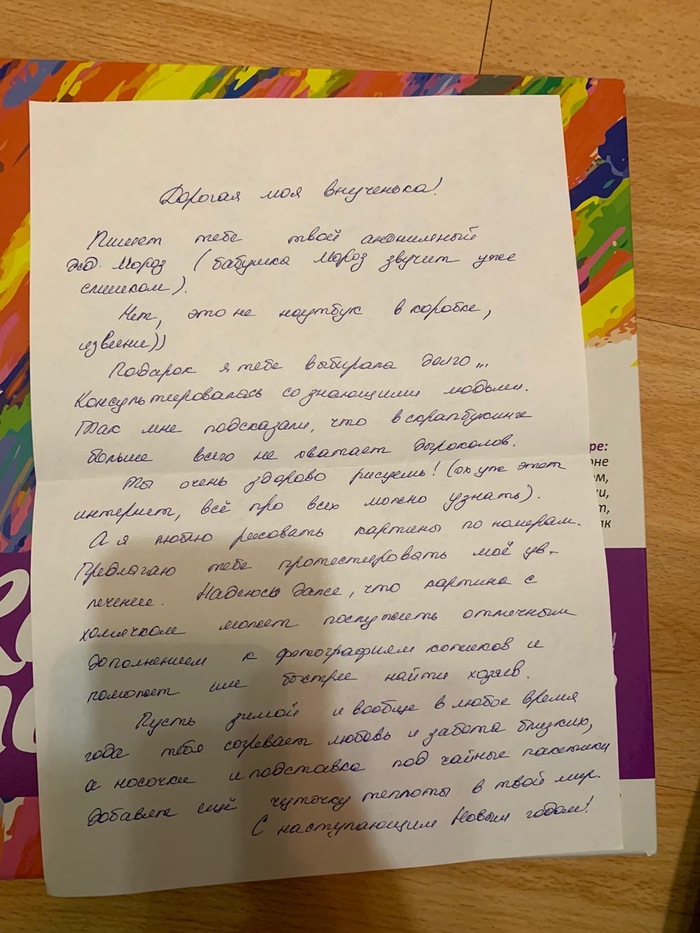 Дорогая моя внученька!
Пишет тебе твой анонимный
Дед Мороз (бабушка Мороз звучит уже
слишком).
Нет, это не ноутбук в коробке,
извени))
Подарок я тебе выбирала долго...
Консультировалась со знающими людьми.
Так мне подсказали, что в скрапбукинге
больше всего не хватает дыроколов.
Ты очень здорово рисуешь! (ох уж этот
интернет, всё про всех можно узнать).
А я люблю рисовать картины по номерам.
Предлагаю тебе протестировать моё ув-
лечение. Надеюсь даже, что картина с
хомячком может послужить отличным
дополнением к фотографием котиков и
поможет им быстрее найти хозяев.
Пусть зимой и вообще в любое время
года тебя согревает любовь и забота близких,
а носочки и подставка под чайные пакетики
добавят ещё чуточку теплоты в твой мир.
С наступающим Новым годом!
ре:
оне
м,
ки,
т,
ак